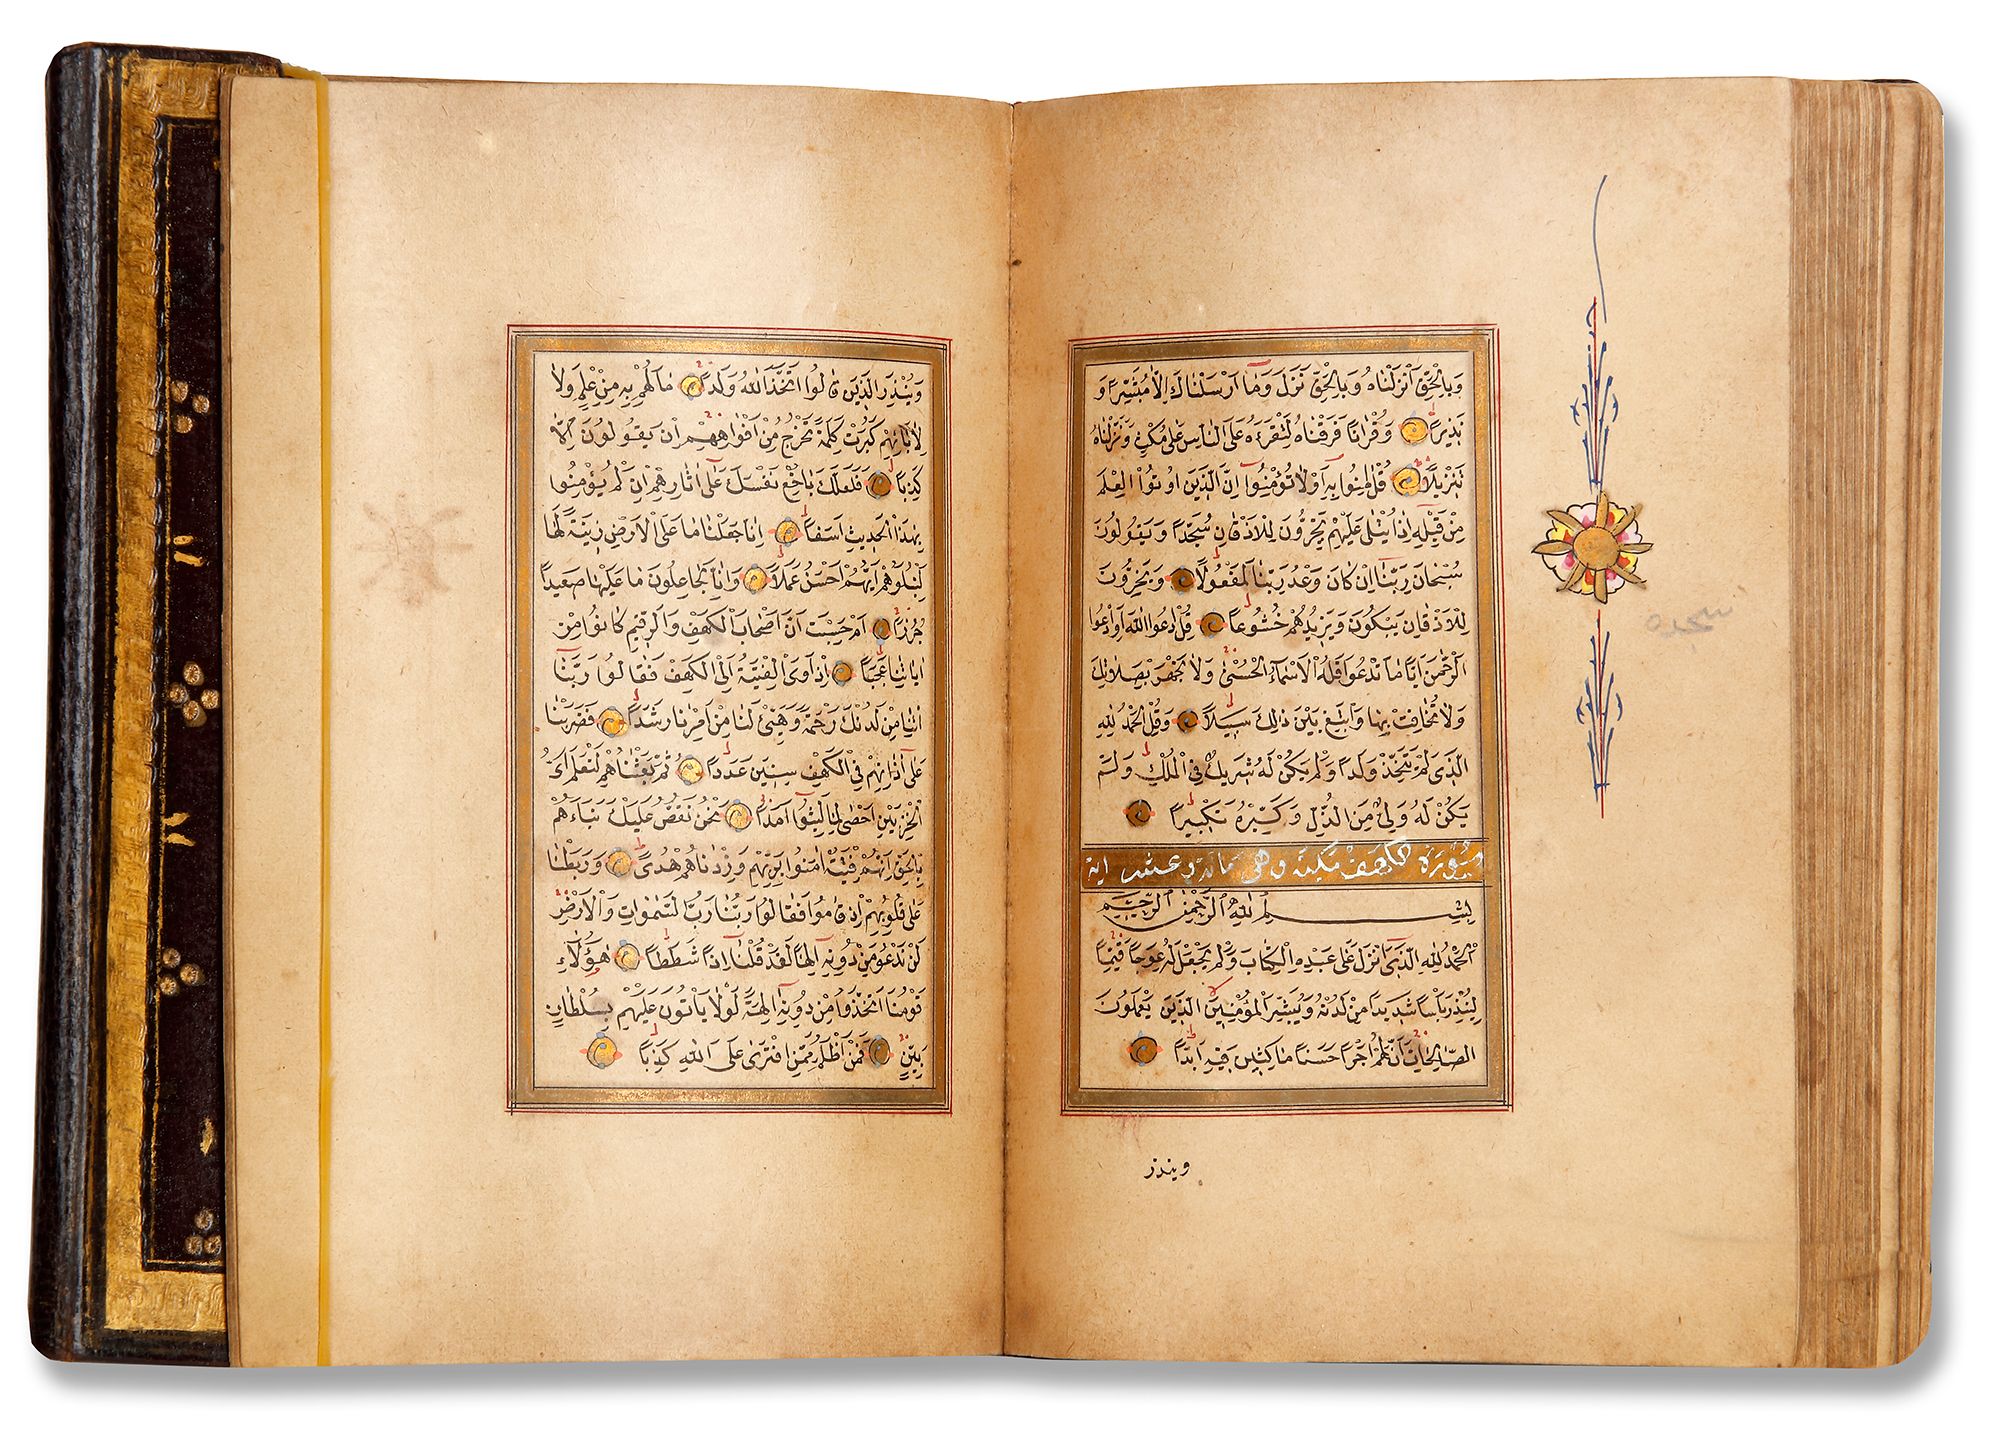 وَبِالْحَقِّ اَنْزَلْنَاهُ وَبِالْحَقِّ نَزَلَ وَمَا اَرْسَلْنَاكَ اِلَّا مُبَشِّرًا وَ
نَذِيرًا وَقُرْاٰنًا فَرَقْنَاهُ لِتَقْرَءَهُ عَلَى النَّاسِ عَلٰى مُكْثٍ وَنَزَّلْنَاهُ
تَنْزِيلًا قُلْ اٰمِنُوا بِهِ اَوْ لَا تُؤْمِنُوا اِنَّ الَّذِينَ اُوتُوا الْعِلْمَ
مِنْ قَبْلِهِ اِذَا يُتْلٰى عَلَيْهِمْ يَخِرُّونَ لِلْاَذْقَانِ سُجَّدًا وَيَقُولُونَ
سُبْحَانَ رَبِّنَا اِنْ كَانَ وَعْدُ رَبِّنَا لَمَفْعُولًا وَيَخِرُّونَ
لِلْاَذْقَانِ يَبْكُونَ وَيَزِيدُهُمْ خُشُوعًا قُلِ ادْعُوا اللّٰهَ اَوِ ادْعُوا
الرَّحْمٰنَ اَيًّا مَا تَدْعُوا فَلَهُ الْاَسْمَاءُ الْحُسْنٰى وَلَا تَجْهَرْ بِصَلَاتِكَ
وَلَا تُخَافِتْ بِهَا وَابْتَغِ بَيْنَ ذٰلِكَ سَبِيلًا وَقُلِ الْحَمْدُ لِلّٰهِ
الَّذِى لَمْ يَتَّخِذْ وَلَدًا وَلَمْ يَكُنْ لَهُ شَرِيكٌ فِى الْمُلْكِ وَلَمْ
يَكُنْ لَهُ وَلِىٌّ مِنَ الذُّلِّ وَكَبِّرْهُ تَكْبِيرًا
سورة الكهف مكية وهى مائة وعشر اية
بِسْمِ اللّٰهِ الرَّحْمٰنِ الرَّحِيمِ
اَلْحَمْدُ لِلّٰهِ الَّذِى اَنْزَلَ عَلٰى عَبْدِهِ الْكِتَابَ وَلَمْ يَجْعَلْ لَهُ عِوَجًا قَيِّمًا
لِيُنْذِرَ بَاْسًا شَدِيدًا مِنْ لَدُنْهُ وَيُبَشِّرَ الْمُؤْمِنِينَ الَّذِينَ يَعْمَلُونَ
الصَّالِحَاتِ اَنَّ لَهُمْ اَجْرًا حَسَنًا مَاكِثِينَ فِيهِ اَبَدًا
وينذر
سجده
وَيُنْذِرَ الَّذِينَ قَالُوا اتَّخَذَ اللّٰهُ وَلَدًا مَا لَهُمْ بِهِ مِنْ عِلْمٍ وَلَا
لِاٰبَائِهِمْ كَبُرَتْ كَلِمَةً تَخْرُجُ مِنْ اَفْوَاهِهِمْ اِنْ يَقُولُونَ اِلَّا
كَذِبًا فَلَعَلَّكَ بَاخِعٌ نَفْسَكَ عَلٰى اٰثَارِهِمْ اِنْ لَمْ يُؤْمِنُوا
بِهٰذَا الْحَدِيثِ اَسَفًا اِنَّا جَعَلْنَا مَا عَلَى الْاَرْضِ زِينَةً لَهَا
لِنَبْلُوَهُمْ اَيُّهُمْ اَحْسَنُ عَمَلًا وَاِنَّا لَجَاعِلُونَ مَا عَلَيْهَا صَعِيدًا
جُرُزًا اَمْ حَسِبْتَ اَنَّ اَصْحَابَ الْكَهْفِ وَالرَّقِيمِ كَانُوا مِنْ
اٰيَاتِنَا عَجَبًا اِذْ اَوَى الْفِتْيَةُ اِلَى الْكَهْفِ فَقَالُوا رَبَّنَا
اٰتِنَا مِنْ لَدُنْكَ رَحْمَةً وَهَيِّئْ لَنَا مِنْ اَمْرِنَا رَشَدًا فَضَرَبْنَا
عَلٰى اٰذَانِهِمْ فِى الْكَهْفِ سِنِينَ عَدَدًا ثُمَّ بَعَثْنَاهُمْ لِنَعْلَمَ اَىُّ
الْحِزْبَيْنِ اَحْصٰى لِمَا لَبِثُوا اَمَدًا نَحْنُ نَقُصُّ عَلَيْكَ نَبَاَهُمْ
بِالْحَقِّ اِنَّهُمْ فِتْيَةٌ اٰمَنُوا بِرَبِّهِمْ وَزِدْنَاهُمْ هُدًى وَرَبَطْنَا
عَلٰى قُلُوبِهِمْ اِذْ قَامُوا فَقَالُوا رَبُّنَا رَبُّ السَّمٰوَاتِ وَالْاَرْضِ
لَنْ نَدْعُوَ مِنْ دُونِهِ اِلٰهًا لَقَدْ قُلْنَا اِذًا شَطَطًا هٰؤُلَاءِ
قَوْمُنَا اتَّخَذُوا مِنْ دُونِهِ اٰلِهَةً لَوْلَا يَاْتُونَ عَلَيْهِمْ بِسُلْطَانٍ
بَيِّنٍ فَمَنْ اَظْلَمُ مِمَّنِ افْتَرٰى عَلَى اللّٰهِ كَذِبًا